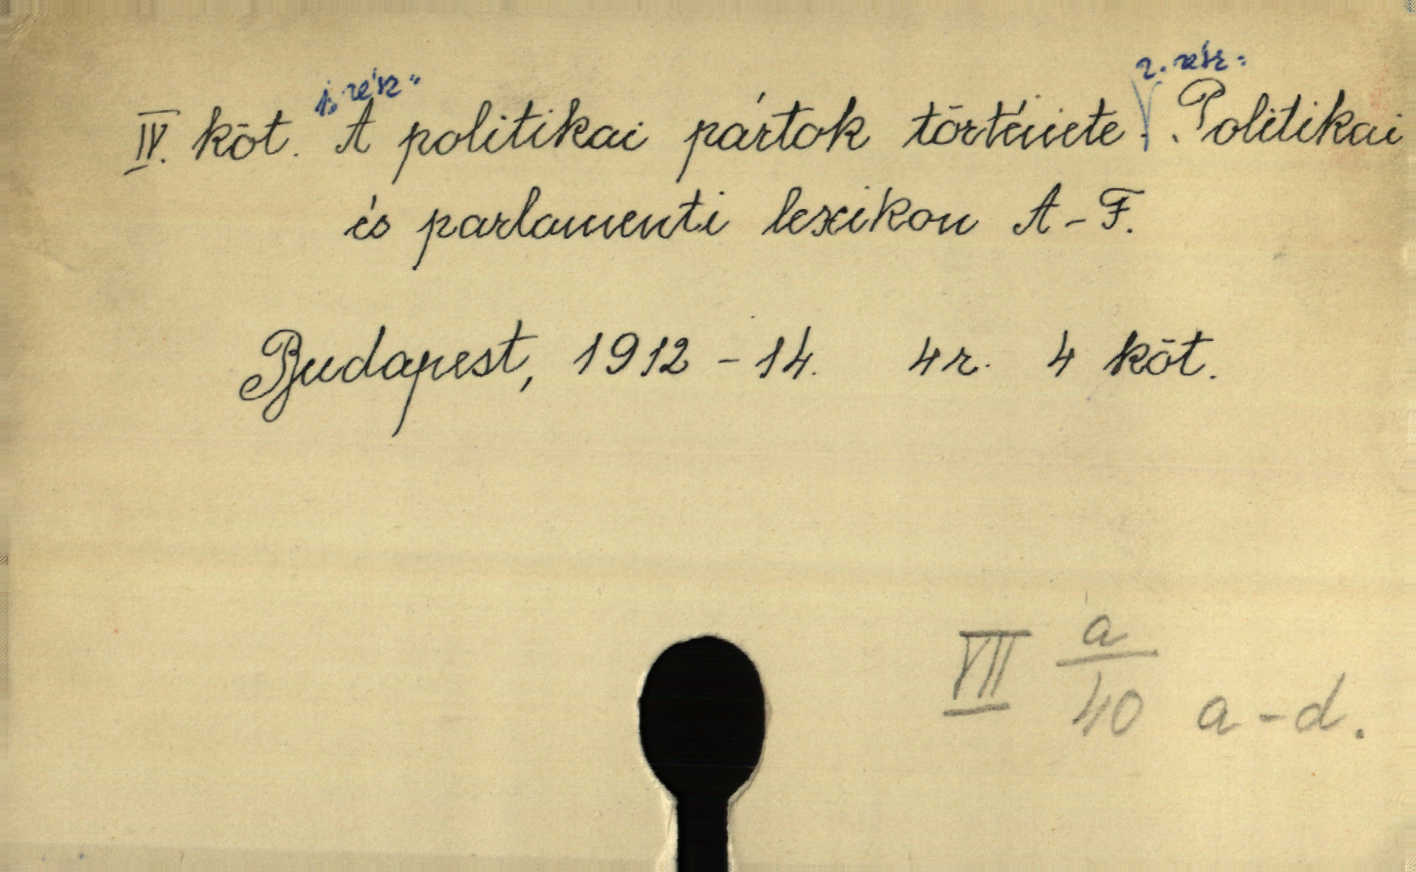 1. rész: 2. rész:
IV. köt. A politikai pártok története. Politikai
és parlamenti lexikon A-F.
Budapest, 1912-14. 4r. 4 köt.
VII a/40 a-d.